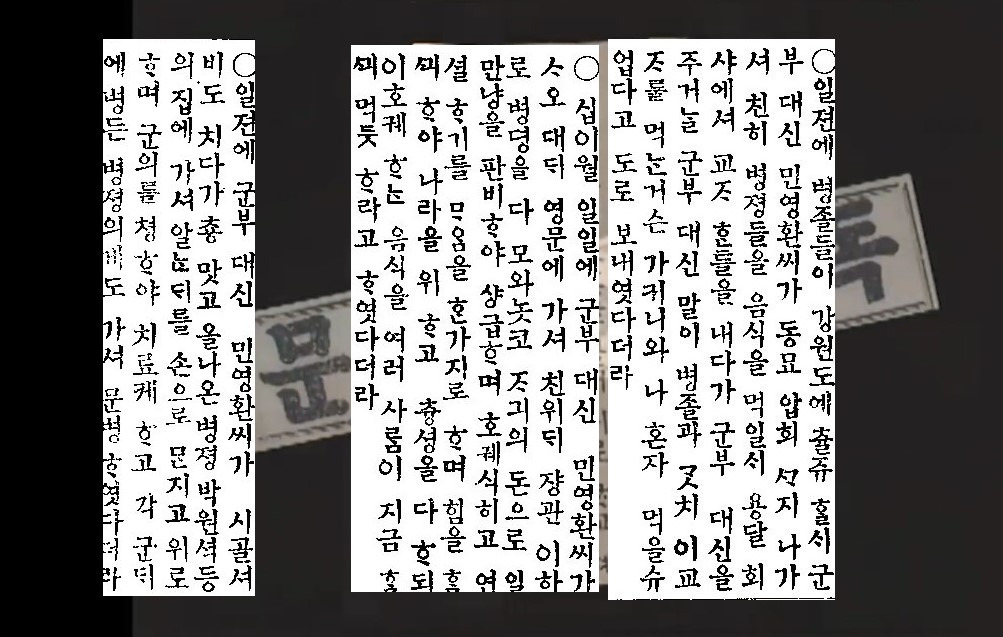 ○일젼에 병졸들이 강원도에 츌쥬 ᄒᆞᆯᄉᆡ 군
부 대신 민영환씨가 동묘 압희 ᄭᆞ지 나가
셔 친히 병졍들을 음식을 먹일ᄉᆡ 용달 회
샤에셔 교ᄌᆞ ᄒᆞᆫ틀을 내다가 군부 대신을
주거ᄂᆞᆯ 군부 대신 말이 병졸과 ᄀᆞᆺ치 이 교
ᄌᆞ를 먹ᄂᆞᆫ거슨 가커니와 나 혼자 먹을슈
업다고 도로 보내엿다더라
○ 십이월 일일에 군부 대신 민영환씨가
ᄉᆞ오 대ᄃᆡ 영문에 가셔 친위ᄃᆡ 쟝관 이하
로 병뎡을 다 모와놋코 ᄌᆞ긔의 돈으로 일
만냥을 판비ᄒᆞ야 샹급ᄒᆞ며 호궤식히고 연
셜 ᄒᆞ기를 ᄆᆞ음을 ᄒᆞᆫ가지로 ᄒᆞ며 힘을 ᄒᆞᆷ
ᄭᅴ ᄒᆞ야 나라을 위 ᄒᆞ고 츙셩을 다 ᄒᆞ되
이 호궤 ᄒᆞᄂᆞᆫ 음식을 여러 사ᄅᆞᆷ이 지금 ᄒᆞᆷ
ᄭᅴ 먹듯 ᄒᆞ라고 ᄒᆞ엿다더라
○일젼에 군부 대신 민영환씨가 시골셔
비도 치다가 춍 맛고 올나온 병졍 박원셕등
의 집에 가셔 알ᄂᆞᆫᄃᆡ를 손으로 ᄆᆞᆫ지고 위로
ᄒᆞ며 군의를 쳥ᄒᆞ야 치료케 ᄒᆞ고 각 군ᄃᆡ
에 병든 병졍의게도 가셔 문병ᄒᆞ엿다더라
독
문